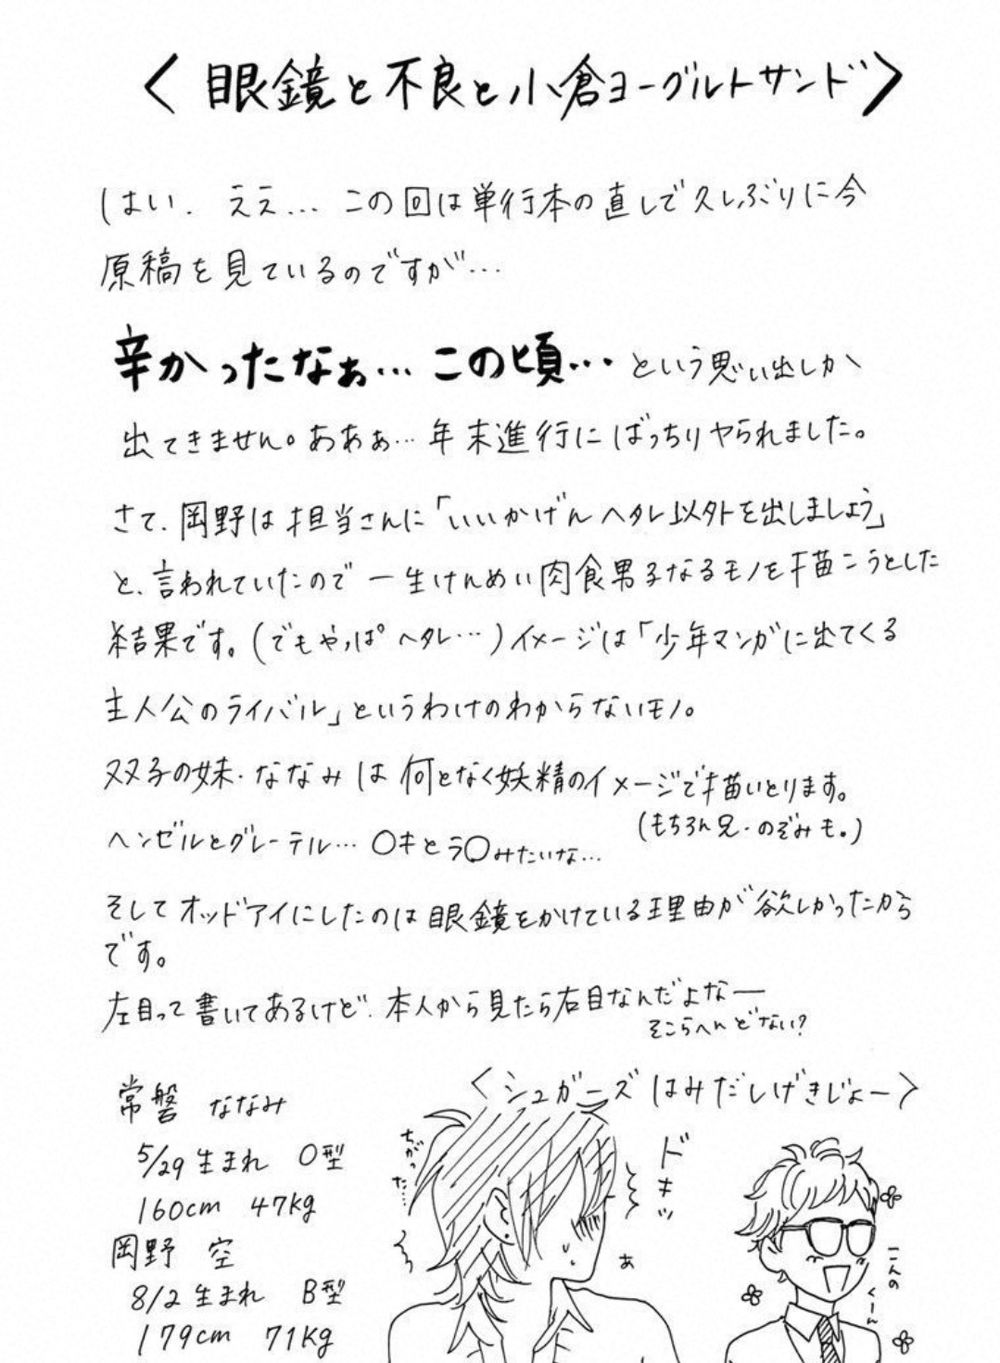 〈眼鏡と不良と小倉ヨーグルトサンド〉
はい. ええ… この回は単行本の直しで久しぶりに今
原稿を見ているのですが…
辛かったなぁ… この頃… という思い出しか
出てきません。あああ… 年末進行にばっちりヤられました。
さて、岡野は担当さんに「いいかげんヘタレ以外を出しましょう」
と、言われていたので一生けんめい肉食男子なるモノを描こうとした
結果です。(でもやっぱヘタレ…)イメージは「少年マンガに出てくる
主人公のライバル」というわけのわからないモノ。
双子の妹・ななみは何となく妖精のイメージで描いとります。
(もちろん兄・のぞみも。)
ヘンゼルとグレーテル… ○キとラ○みたいな…
そしてオッドアイにしたのは眼鏡をかけている理由が欲しかったから
です。
左目って書いてあるけど、本人から見たら右目なんだよなー
そこらへんどない?
常磐 ななみ
5/29生まれ O型
160cm 47kg
岡野 空
8/2生まれ B型
179cm 71kg
〈シュガーズはみだしげきじょー〉
ちがった…
ドキッ
あ
こんのくーん